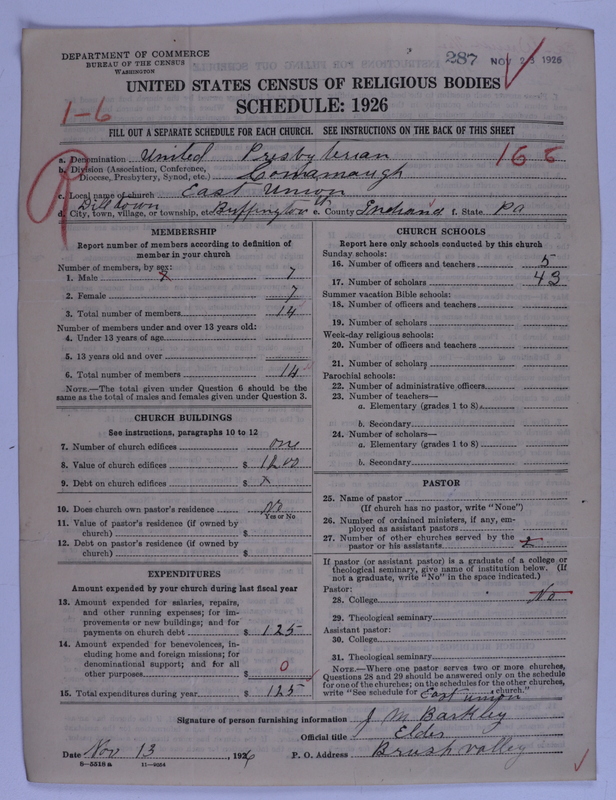 DEPARTMENT OF COMMERCE
BUREAU OF THE CENSUS
WASHINGTON
287 NOV 23 1926
UNITED STATES CENSUS OF RELIGIOUS BODIES
SCHEDULE: 1926
1-6
FILL OUT A SEPARATE SCHEDULE FOR EACH CHURCH. SEE INSTRUCTIONS ON THE BACK OF THIS SHEET
a. Denomination United Presbyterian
b. Division (Association, Conference,
Diocese, Presbytery, Synod, etc.) Conamaugh
c. Local name of church East Union
Dilltown
d. City, town, village, or township, etc. Buffington e. County Indiana f. State Pa
MEMBERSHIP
Report number of members according to definition of
member in your church
Number of members, by sex:
1. Male 7
2. Female 7
3. Total number of members 14
Number of members under and over 13 years old:
4. Under 13 years of age
5. 13 years old and over
6. Total number of members 14
NOTE.—The total given under Question 6 should be the
same as the total of males and females given under Question 3.
CHURCH BUILDINGS
See instructions, paragraphs 10 to 12
7. Number of church edifices one
8. Value of church edifices $ 1200
9. Debt on church edifices $ x
10. Does church own pastor's residence No
Yes or No
11. Value of pastor's residence (if owned by
church) $
12. Debt on pastor's residence (if owned by
church) $
EXPENDITURES
Amount expended by your church during last fiscal year
13. Amount expended for salaries, repairs,
and other running expenses; for im-
provements or new buildings; and for
payments on church debt $ 125
14. Amount expended for benevolences, in-
cluding home and foreign missions; for
denominational support; and for all
other purposes $ 0
15. Total expenditures during year $ 125
CHURCH SCHOOLS
Report here only schools conducted by this church
Sunday schools:
16. Number of officers and teachers 5
17. Number of scholars 43
Summer vacation Bible schools:
18. Number of officers and teachers
19. Number of scholars
Week-day religious schools:
20. Number of officers and teachers
21. Number of scholars
Parochial schools:
22. Number of administrative officers
23. Number of teachers—
a. Elementary (grades 1 to 8)
b. Secondary
24. Number of scholars—
a. Elementary (grades 1 to 8)
b. Secondary
PASTOR
25. Name of pastor
(If church has no pastor, write "None")
26. Number of ordained ministers, if any, em-
ployed as assistant pastors
27. Number of other churches served by the
pastor or his assistants 2
If pastor (or assistant pastor) is a graduate of a college or
theological seminary, give name of institution below. (If
not a graduate, write "No" in the space indicated.)
Pastor:
28. College No
29. Theological seminary
Assistant pastor:
30. College
31. Theological seminary
NOTE.—Where one pastor serves two or more churches,
Questions 28 and 29 should be answered only on the schedule
for one of the churches; on the schedules for the other churches,
write "See schedule for East union church."
Signature of person furnishing information J M Barkley
Official title Elder
Date Nov 13, 1926 P. O. Address Brushvalley
8—5518 a 11—9654